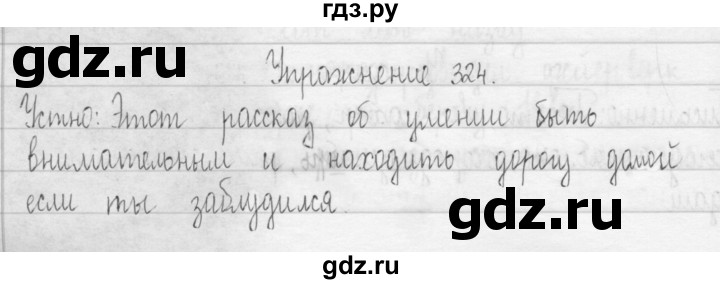 гдз.ру
gdz.ru gdz.ru
Упражнение 324.
Устно: Этот рассказ об умении быть
внимательным и находить дорогу домой
если ты заблудился.
gdz.ru gdz.ru
gdz.ru